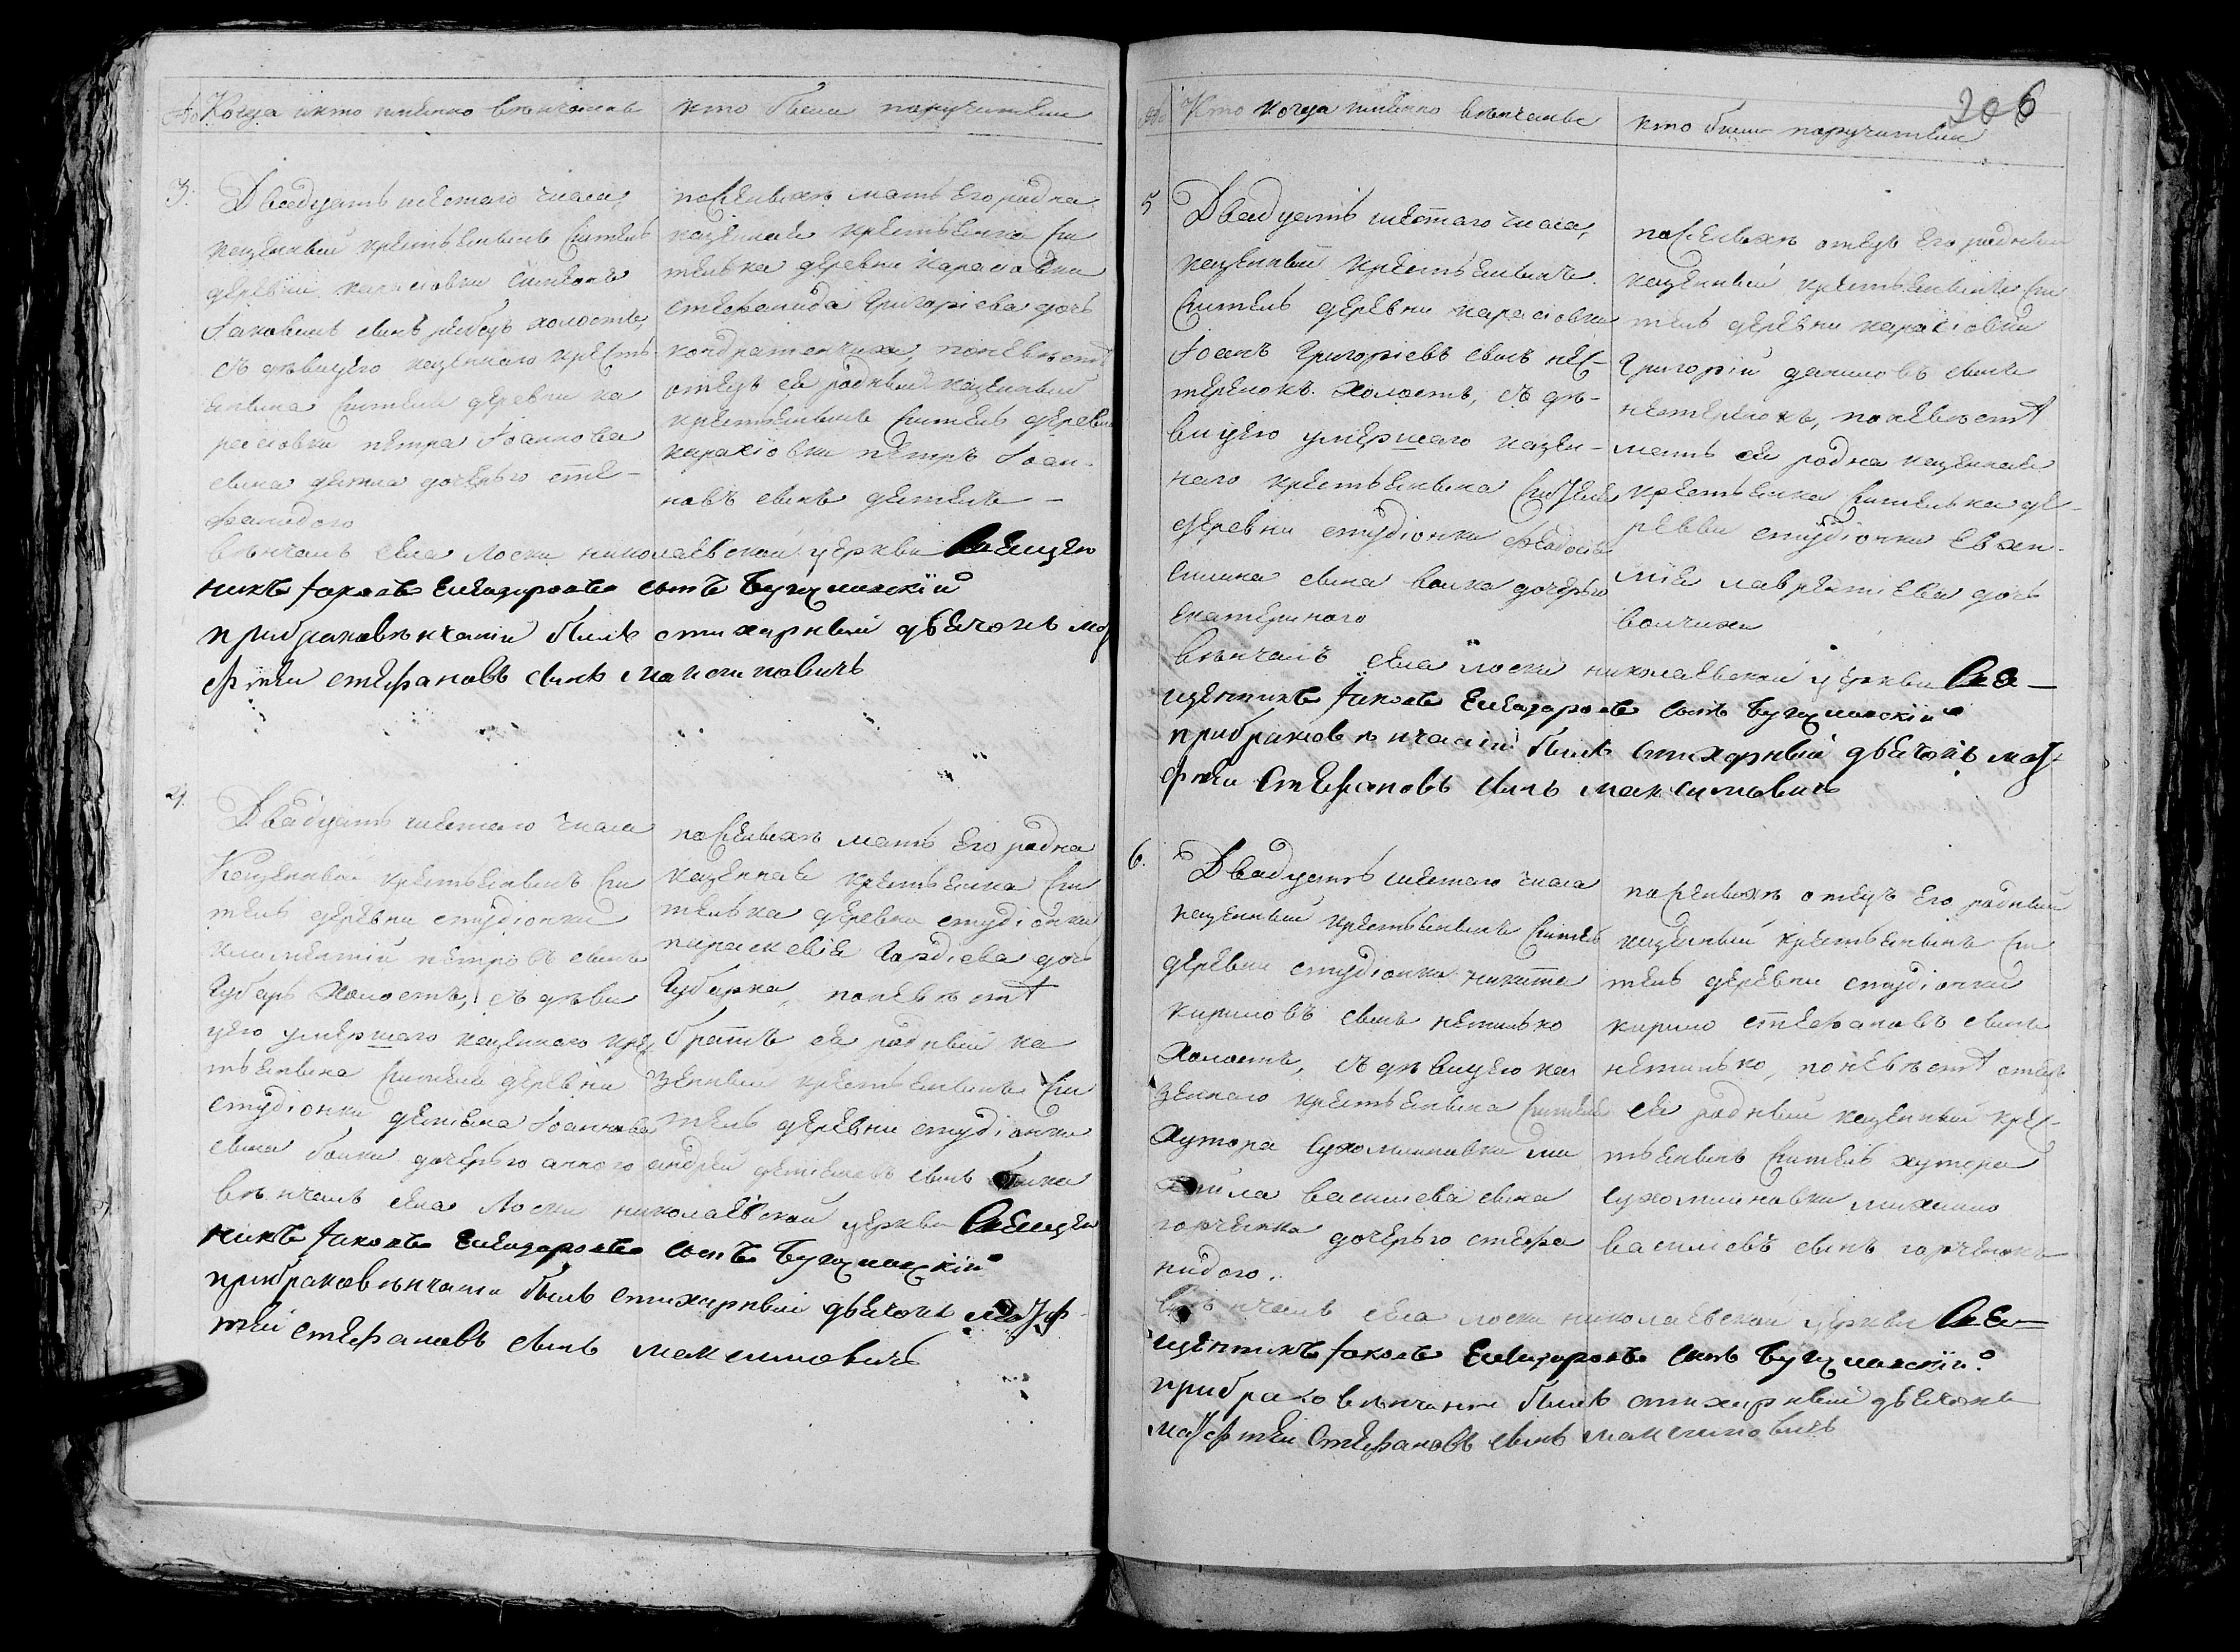 № Когда и кто именно венчанъ
кто были поручители
3.
Двадцать шестаго числа
казенный крестьянинъ житель
деревни карасіовки симеонъ
Іаковлевъ сынъ холостъ,
съ дѣвицею казеннаго кресть-
янина жителя деревни ка
расіовки петра Іоаннова
сына дочерью сте-
фанидою
по женихѣ мать его родна
казенная крестьянка жи
телька деревни карасіовки
стефанида Григоріева дочь
кондратенчиха, по невѣстѣ
отецъ ея родный казенный
крестьянинъ житель деревни
карасіовки петръ Іоан-
новъ сынъ
вѣнчалъ села лоски николаевской церкви Священ
никъ Іаковъ Елеазаровъ сынъ Бугуславскій
при браковѣнчаніи былъ стихарный дьячокъ мат
фѣй стефановъ сынъ максимовичъ
4.
Двадцать шестаго числа
Казенный крестьянинъ жи
тель деревни студіонки
климентій петровъ сынъ
Губарь холостъ, съ дѣви
цею умершаго казеннаго крес
тьянина жителя деревни
студіонки деміяна Іоаннова
сына бойки дочерью анною
по женихѣ мать его родна
казенная крестьянка жи
телька деревни студіонки
параскевія дочь
Губарка, по невѣстѣ
братъ ея родный ка
зенный крестьянинъ жи
тель деревни студіонки
андрей деміяновъ сынъ бойка
вѣнчалъ села лоски николаевской церкви Священ
никъ Іаковъ Елеазаровъ сынъ Бугуславскій
при браковѣнчаніи былъ стихарный дьячокъ матф
тѣй стефановъ сынъ максимовичъ
206
№ Кто когда именно вѣнчанъ
кто были поручители
5
Двадцать шестаго числа,
казенный крестьянинъ
житель деревни карасіовки
Іоанъ Григоріевъ сынъ нес-
теренокъ холостъ, съ дѣ-
вицею умершаго казен-
наго крестьянина жителя
деревни студіонки
сына волка дочерью
екатериною
по женихѣ отецъ его родный
казенный крестьянинъ жи
тель деревни карасіовки
Григорій даниловъ сынъ
нестеренокъ, по невѣстѣ
мать ея родна казенная
крестьянка жителька де-
ревни студіонки Евхи-
мія лаврентіева дочь
волчиха
вѣнчалъ села лоски николаевской церкви Свя-
щенникъ Іаковъ Елеазаровъ сынъ Бугуславскій
при браковѣнчаніи былъ стихарный дьячокъ мат
фѣй Стефановъ сынъ максимовичъ
6.
Двадцать шестаго числа
казенный крестьянинъ житель
деревни студіонки никита
кириловъ сынъ нетилько
холостъ, съ дѣвицею ка
зеннаго крестьянина жителя
хутора сухомлиновки ми
хаила василіева сына
горченка дочерью стефа
нидою.
по женихѣ отецъ его родный
казенный крестьянинъ жи
тель деревни студіонки
кирило стефановъ сынъ
нетилько, по невѣстѣ отецъ
ея родный казенный крес-
тьянинъ житель хутора
сухомлиновки михаило
василіевъ сынъ горченокъ
вѣнчалъ села лоски николаевской церкви Свя-
щенникъ Іаковъ Елеазаровъ сынъ Бугуславскій
при браковѣнчаніи былъ стихарный дьячокъ
матфѣй Стефановъ сынъ максимовичъ